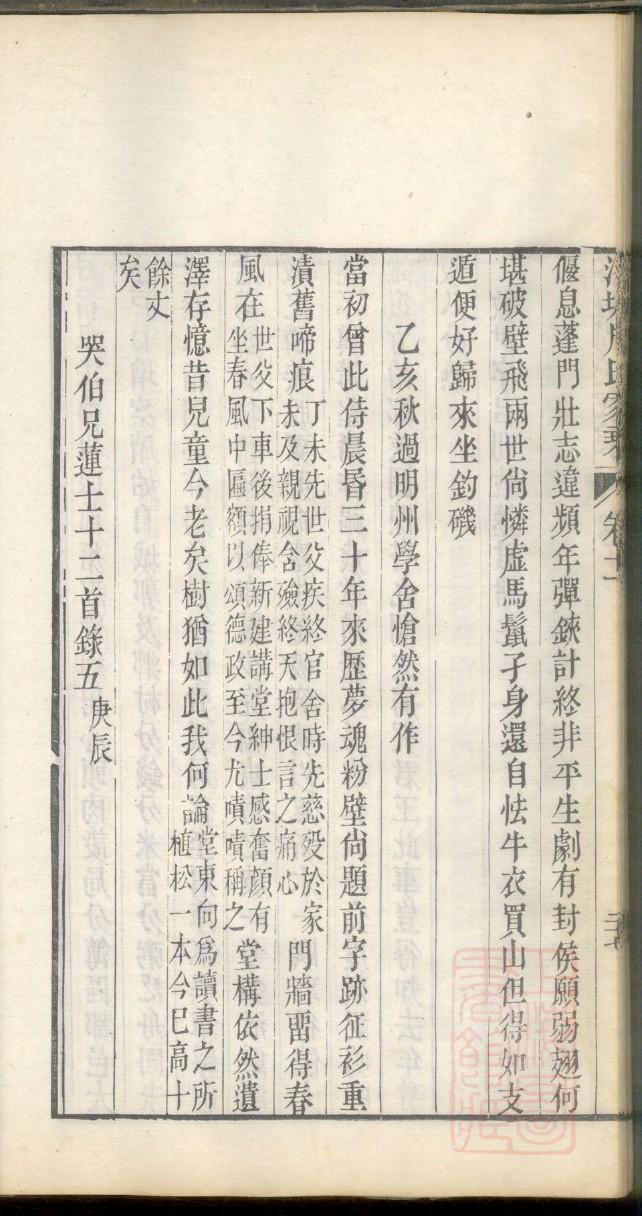 偃息蓬門壯志違頻年彈鋏計終非平生劇有封侯願弱翅何
堪破壁飛兩世尙憐虛馬鬣孑身還自怯牛衣買山但得如支
遁便好歸來坐釣磯
乙亥秋過明州學舍愴然有作
當初曾此侍晨昏三十年來歷夢魂粉壁尙題前字跡征衫重
漬舊啼痕丁未先世父疾終官舍時先慈歿於家未及親視含殮終天抱恨言之痛心門牆畱得春
風在世父下車後捐俸新建講堂紳士感奮顏有坐春風中匾額以頌德政至今尤嘖嘖稱之堂構依然遺
澤存憶昔兒童今老矣樹猶如此我何論堂東向爲讀書之所植松一本今已高十
餘丈矣
哭伯兄蓮士十二首錄五庚辰
周氏家
卷十